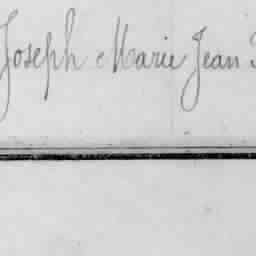 Joseph Marie Jean